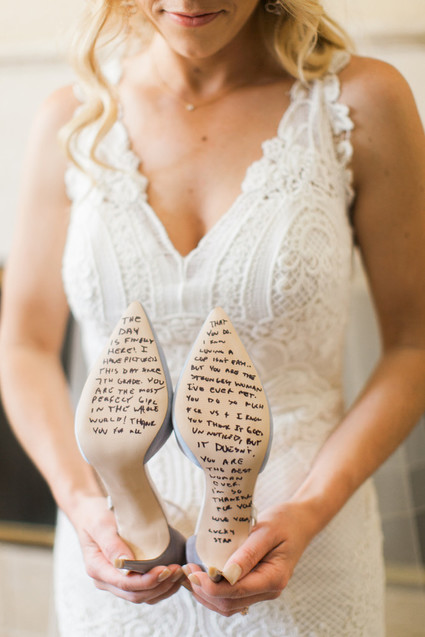 THE
DAY
IS FINALLY
HERE! I
HAVE PICTURED
THIS DAY SINCE
7TH GRADE. YOU
ARE THE MOST
PERFECT GIRL
IN THE WHOLE
WORLD! THANK
YOU FOR ALL
THAT
YOU DO.
I KNOW
LOVING A
COP ISN'T EASY...
BUT YOU ARE THE
STRONGEST WOMAN
I'VE EVER MET.
YOU DO SO MUCH
FOR US & I KNOW
YOU THINK IT GOES
UN NOTICED, BUT
IT DOESN'T.
YOU ARE
THE BEST
WOMAN
EVER.
I'M SO
THANKFUL
FOR YOU!
LOVE YOU,
LUCKY
STAR